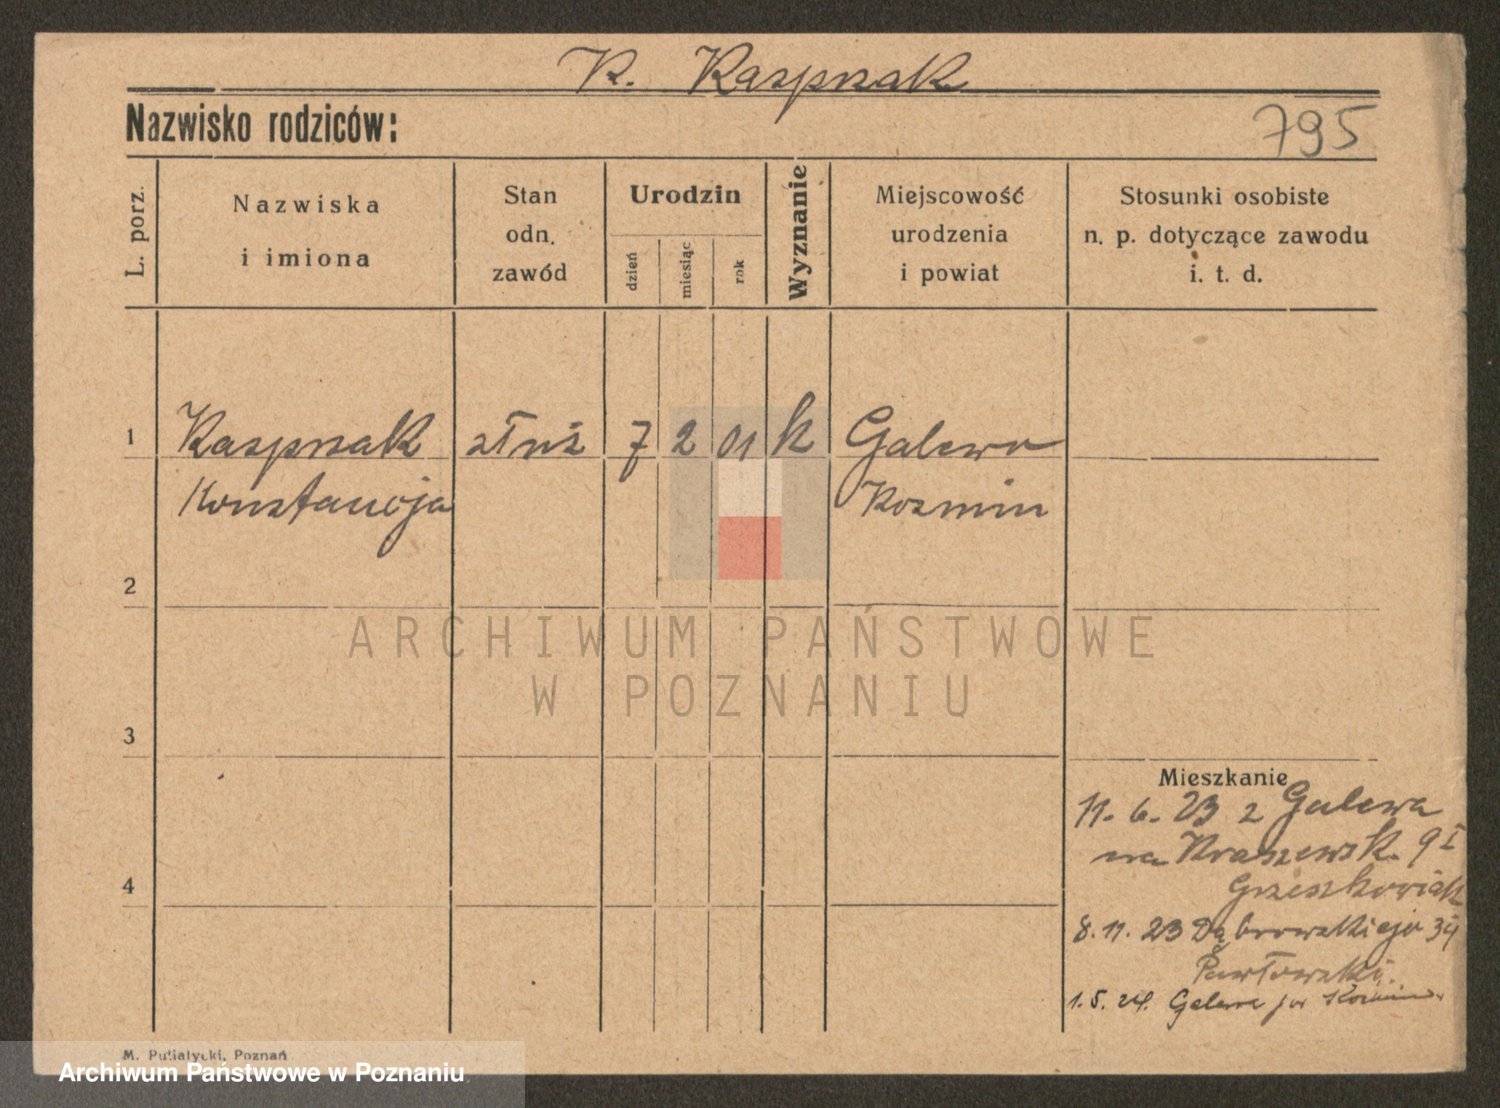 K. Kasprzak
Nazwisko rodziców:
795
L. porz.
Nazwiska
i imiona
Stan
odn.
zawód
Urodzin
dzień
miesiąc
rok
Wyznanie
Miejscowość
urodzenia
i powiat
Stosunki osobiste
n. p. dotyczące zawodu
i. t. d.
1
Kasprzak służ 7 2 01 k Galewo
Konstancja Kozmin
2
ARCHIWUM PAŃSTWOWE
W POZNANIU
3
Mieszkanie
11. 6. 23 z Galewa
na Kraszewsk. 9 I
4
Grzeszkowiak
8. 11. 23 Dąbrowskiego
Pawłowski.
1. 5. 24. Galewo
M. Putiatycki, Poznań
Archiwum Państwowe w Poznaniu